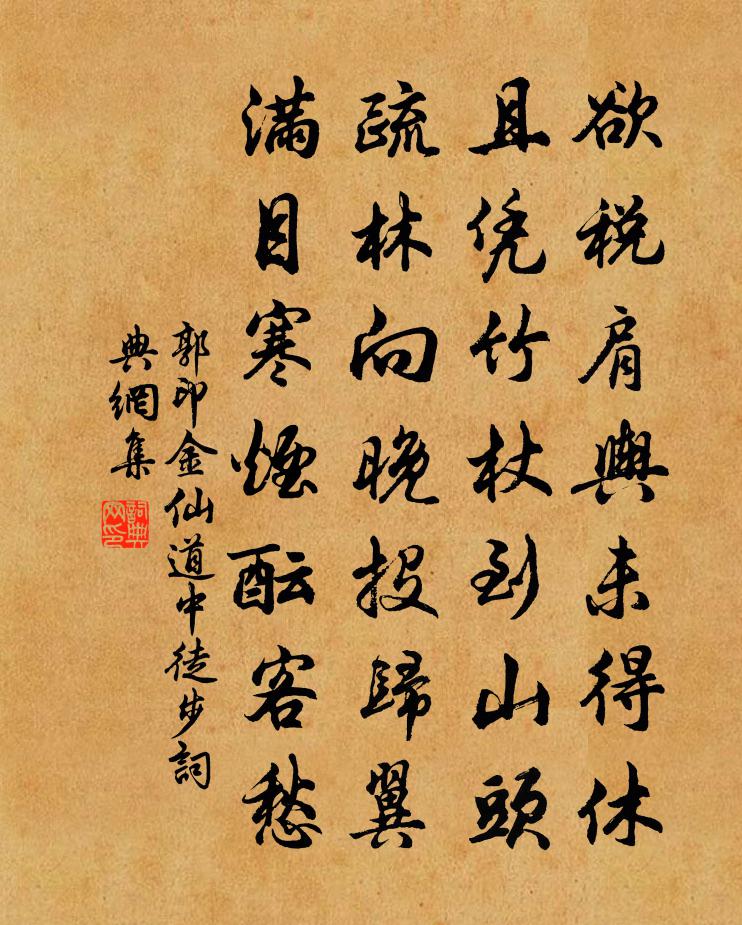 欲税肩輿未得休
且凭竹杖到山頭
疏林向晚投歸翼
滿目寒煙酝客愁
郭印金仙道中徒步詞
典網集
詞典網印